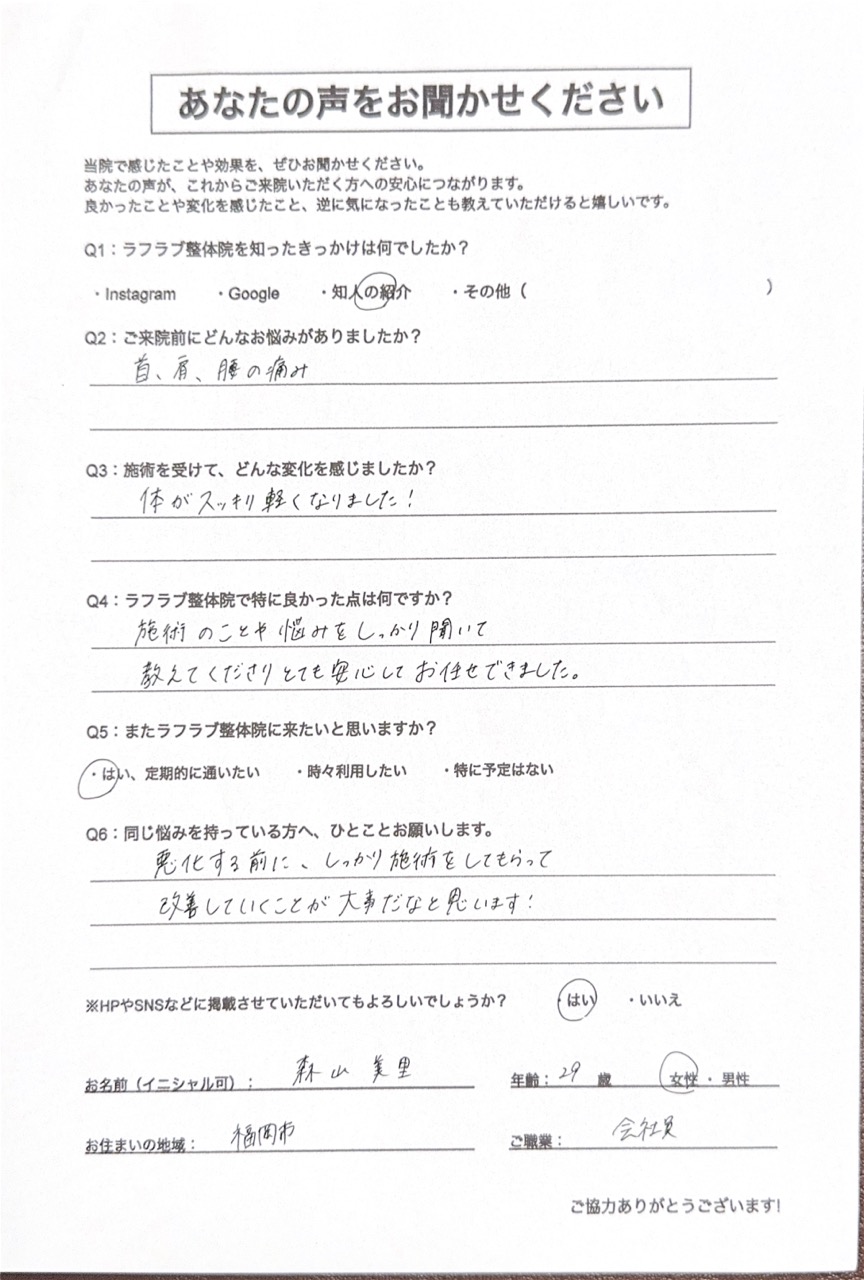 あなたの声をお聞かせください
当院で感じたことや効果を、ぜひお聞かせください。
あなたの声が、これからご来院いただく方への安心につながります。
良かったことや変化を感じたこと、逆に気になったことも教えていただけると嬉しいです。
Q1：ラフラブ整体院を知ったきっかけは何でしたか？
・Instagram ・Google ・知人の紹介 ・その他（ ）
Q2：ご来院前にどんなお悩みがありましたか？
首、肩、腰の痛み
Q3：施術を受けて、どんな変化を感じましたか？
体がスッキリ軽くなりました！
Q4：ラフラブ整体院で特に良かった点は何ですか？
施術のことや悩みをしっかり聞いて
教えてくださりとても安心してお任せできました。
Q5：またラフラブ整体院に来たいと思いますか？
・はい、定期的に通いたい ・時々利用したい ・特に予定はない
Q6：同じ悩みを持っている方へ、ひとことお願いします。
悪化する前に、しっかり施術をしてもらって
改善していくことが大事だなと思います！
※HPやSNSなどに掲載させていただいてもよろしいでしょうか？ ・はい ・いいえ
お名前（イニシャル可）： 森山 美里 年齢：29 歳 女性 ・ 男性
お住まいの地域： 福岡市 ご職業： 会社員
ご協力ありがとうございます!